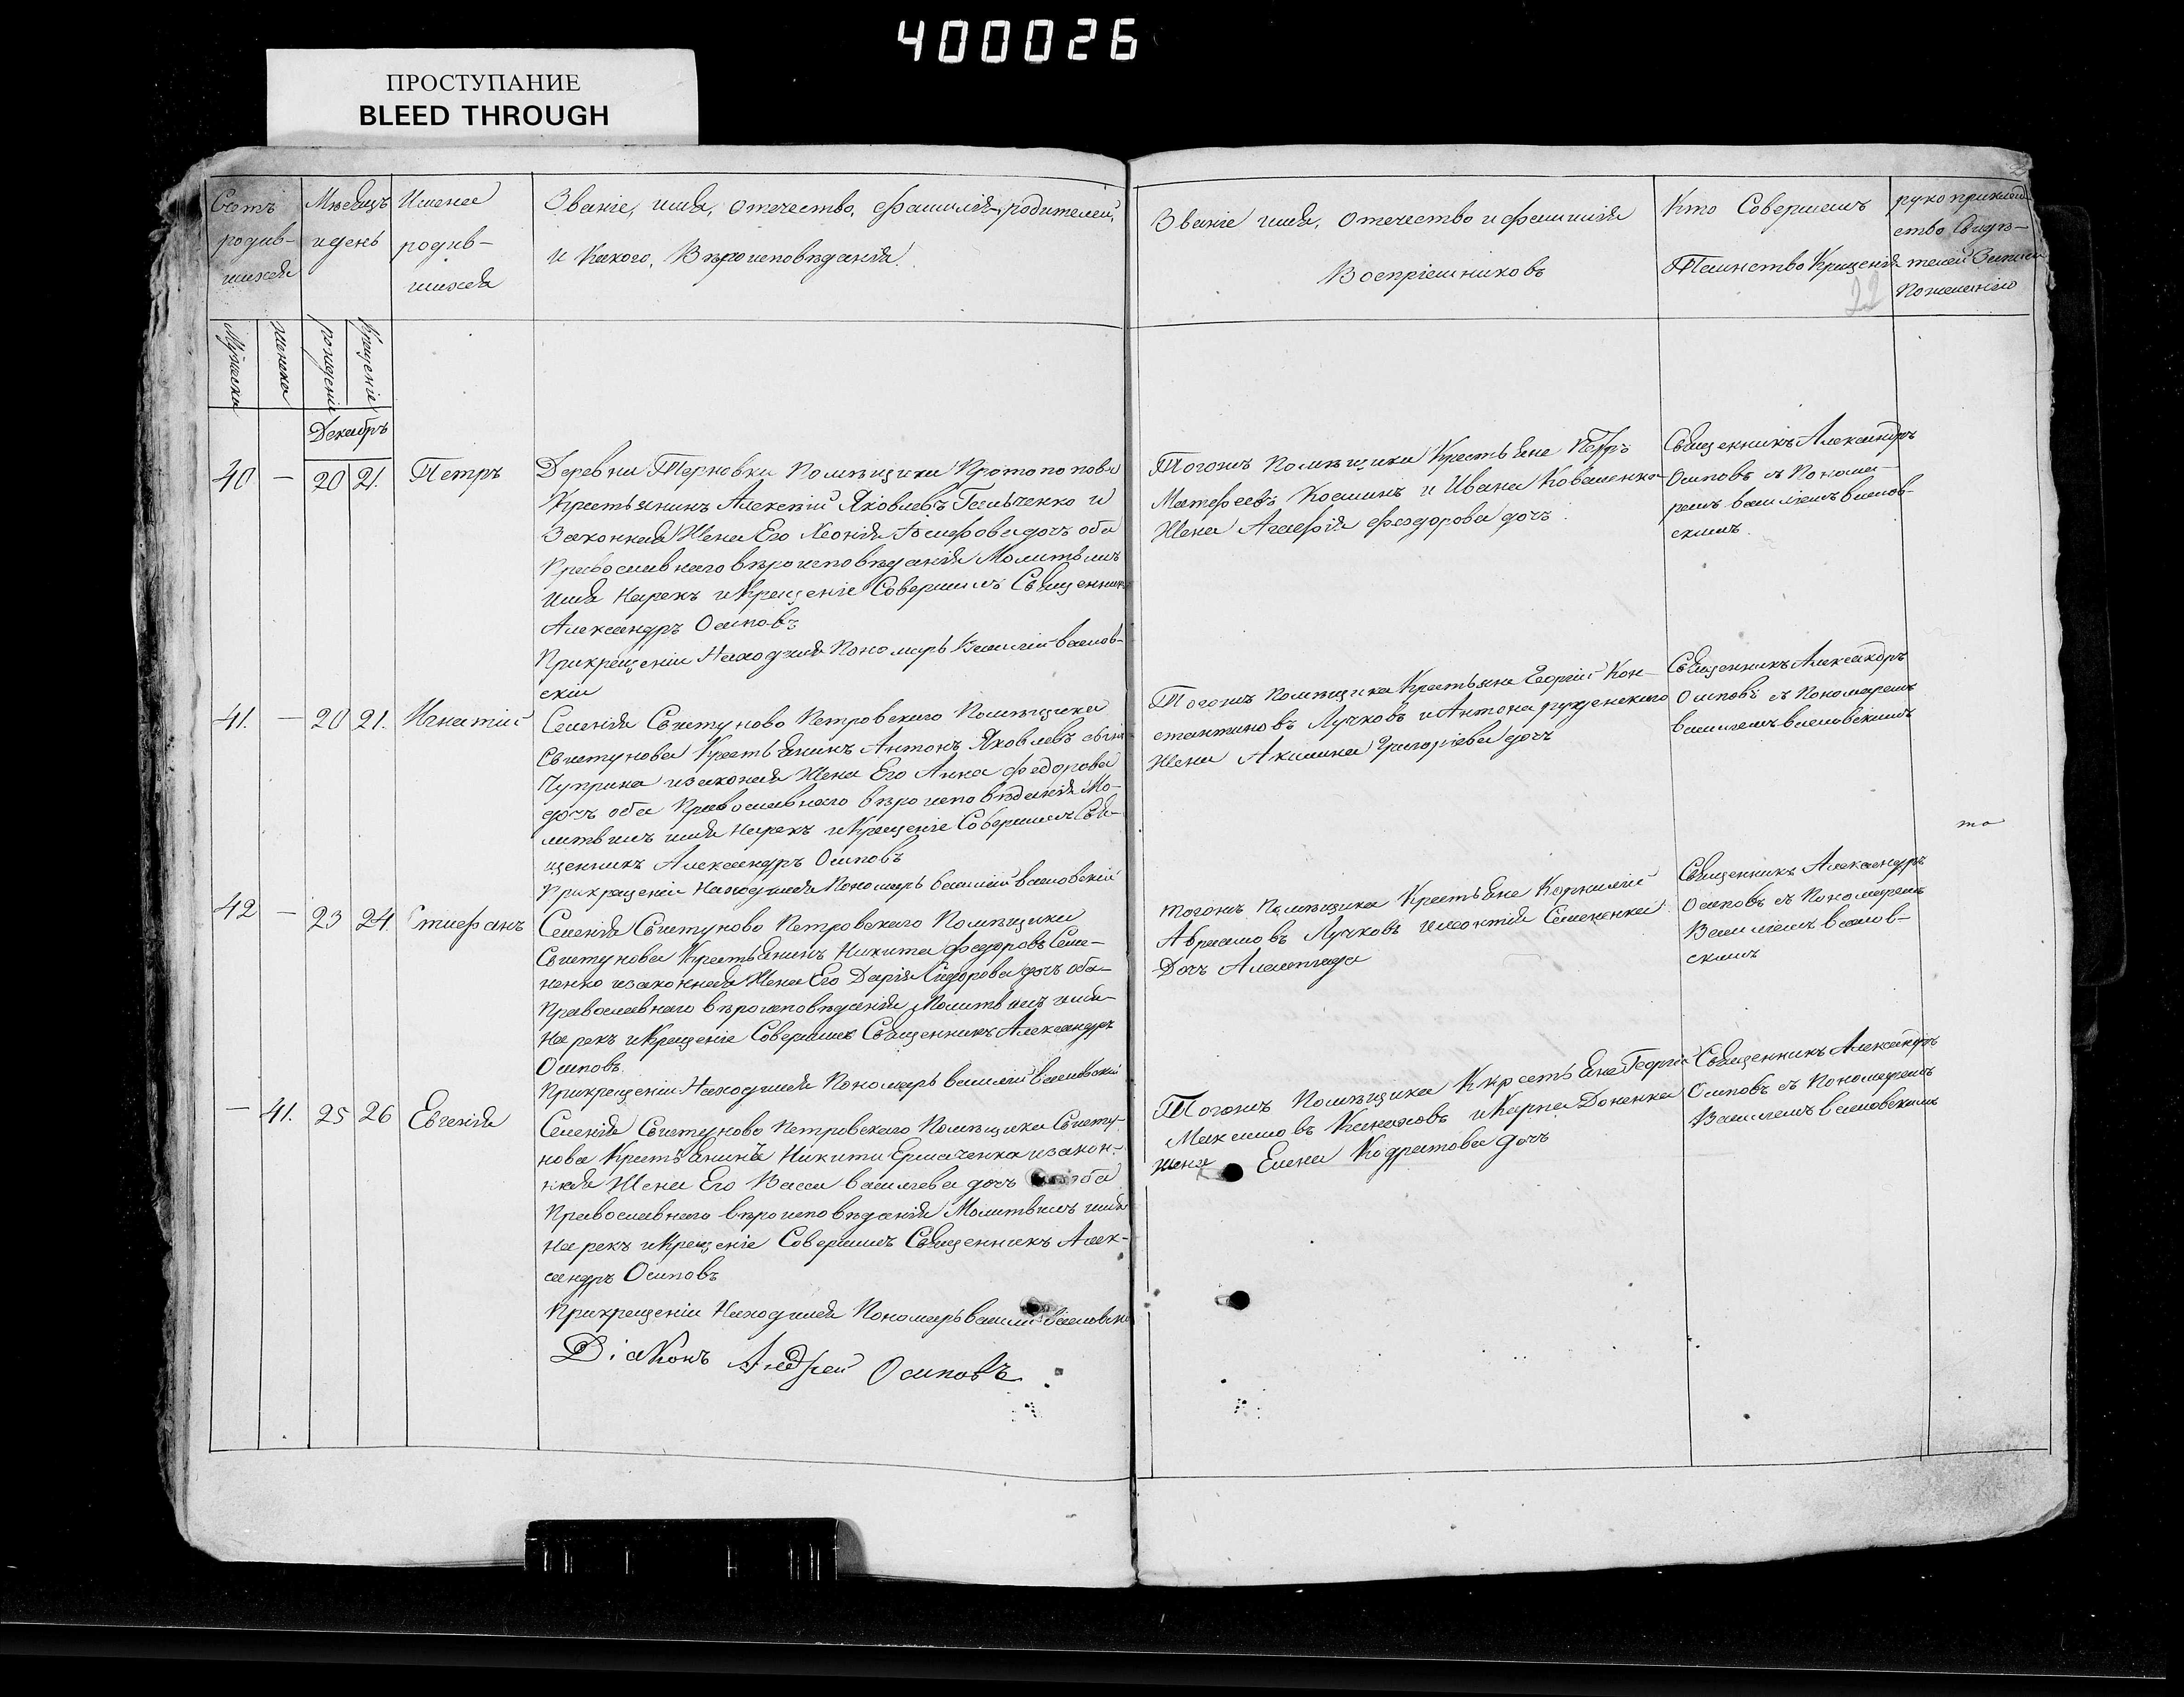 400026
ПРОСТУПАНИЕ
BLEED THROUGH
Счетъ
родив-
шихся
Мѣсяцъ
и день
Имена
родив-
шихся
Званіе, имя, отечество, фамилія, родителей,
и какого, Вѣроисповѣданія.
Званіе имя, отечество и фамилія
Воспріемниковъ
Кто Совершалъ
Таинство Крещенія
22
рукоприклад-
ство Свидѣ-
телей Записи
Пожеланію
Мужеска
Женска
рожденіе
Крещеніе
Декабрь
40 — 20 21. Петръ
Деревни Терновки помѣщика Протопопова
Крестьянинъ Алексѣй Яковлевъ Гальченко и
Законная Жена Его Іосифова дочъ оба
Православнаго вѣроисповѣданія Молитвилъ
имя Нарекъ и Крещеніе Совершилъ Священникъ
Александръ Осиповъ
При крещеніи Находился Пономарь Василій
скій
Тогожъ Помѣщика Крестьяне Петръ
Матфеевъ и Ивана Коваленка
Жена Агафія Феодорова дочъ.
Священникъ Александръ
Осиповъ съ Понома-
ремъ Василіемъ
скимъ.
41. — 20 21. Игнатій
Селенія Свистуново Петровскаго Помѣщика
Свистунова Крестьянинъ Антонъ Яковлевъ
Чуприна и законая Жена Его Анна Федорова
дочъ оба Православнаго вѣроисповѣданія Мо-
литвилъ имя Нарекъ и Крещеніе Совершилъ Свя-
щенникъ Александръ Осиповъ
При крещеніи Находился Пономарь Василій
Тогожъ Помѣщика Крестьяне Георгій Кон-
стантиновъ Лучковъ и Антона
жена Акилина Григоріева дочъ
Священникъ Александръ
Осиповъ съ Пономаремъ
Василіемъ
то
42 — 23 24. Стиефанъ
Селенія Свистуново Петровскаго Помѣщика
Свистунова Крестьянинъ Никита Федоровъ Семе-
ненко и законная Жена Его Дарія Сидорова дочъ оба
Православнаго вѣроисповѣданія Молитвилъ имя
На рекъ и Крещеніе Совершилъ Священникъ Александръ
Осиповъ.
При крещеніи Находился Пономарь Василій
тогожъ Помѣщика Крестьяне Корнилій
Абрамовъ Лучковъ и Семененка
Дочъ
Священникъ Александръ
Осиповъ съ Пономаремъ
Василіемъ
скимъ
— 41. 25 26 Евгенія
Селенія Свистуново Петровскаго Помѣщика Свисту-
нова Крестьянинъ Никита Ермаченка и закон-
ная Жена Его Васса Васильева дочъ оба
Православнаго вѣроисповѣданія Молитвилъ имя
На рекъ и Крещеніе Совершилъ Священникъ Алек-
сандръ Осиповъ
При крещеніи Находился Пономарь Василій
Тогожъ Помѣщика Ккрестьяне Георгій
Максимовъ и Карпа Доненка
жена Елена Кодратова дочъ
Священникъ Александръ
Осиповъ съ Пономаремъ
Василіемъ
Діаконъ Андрей Осиповъ